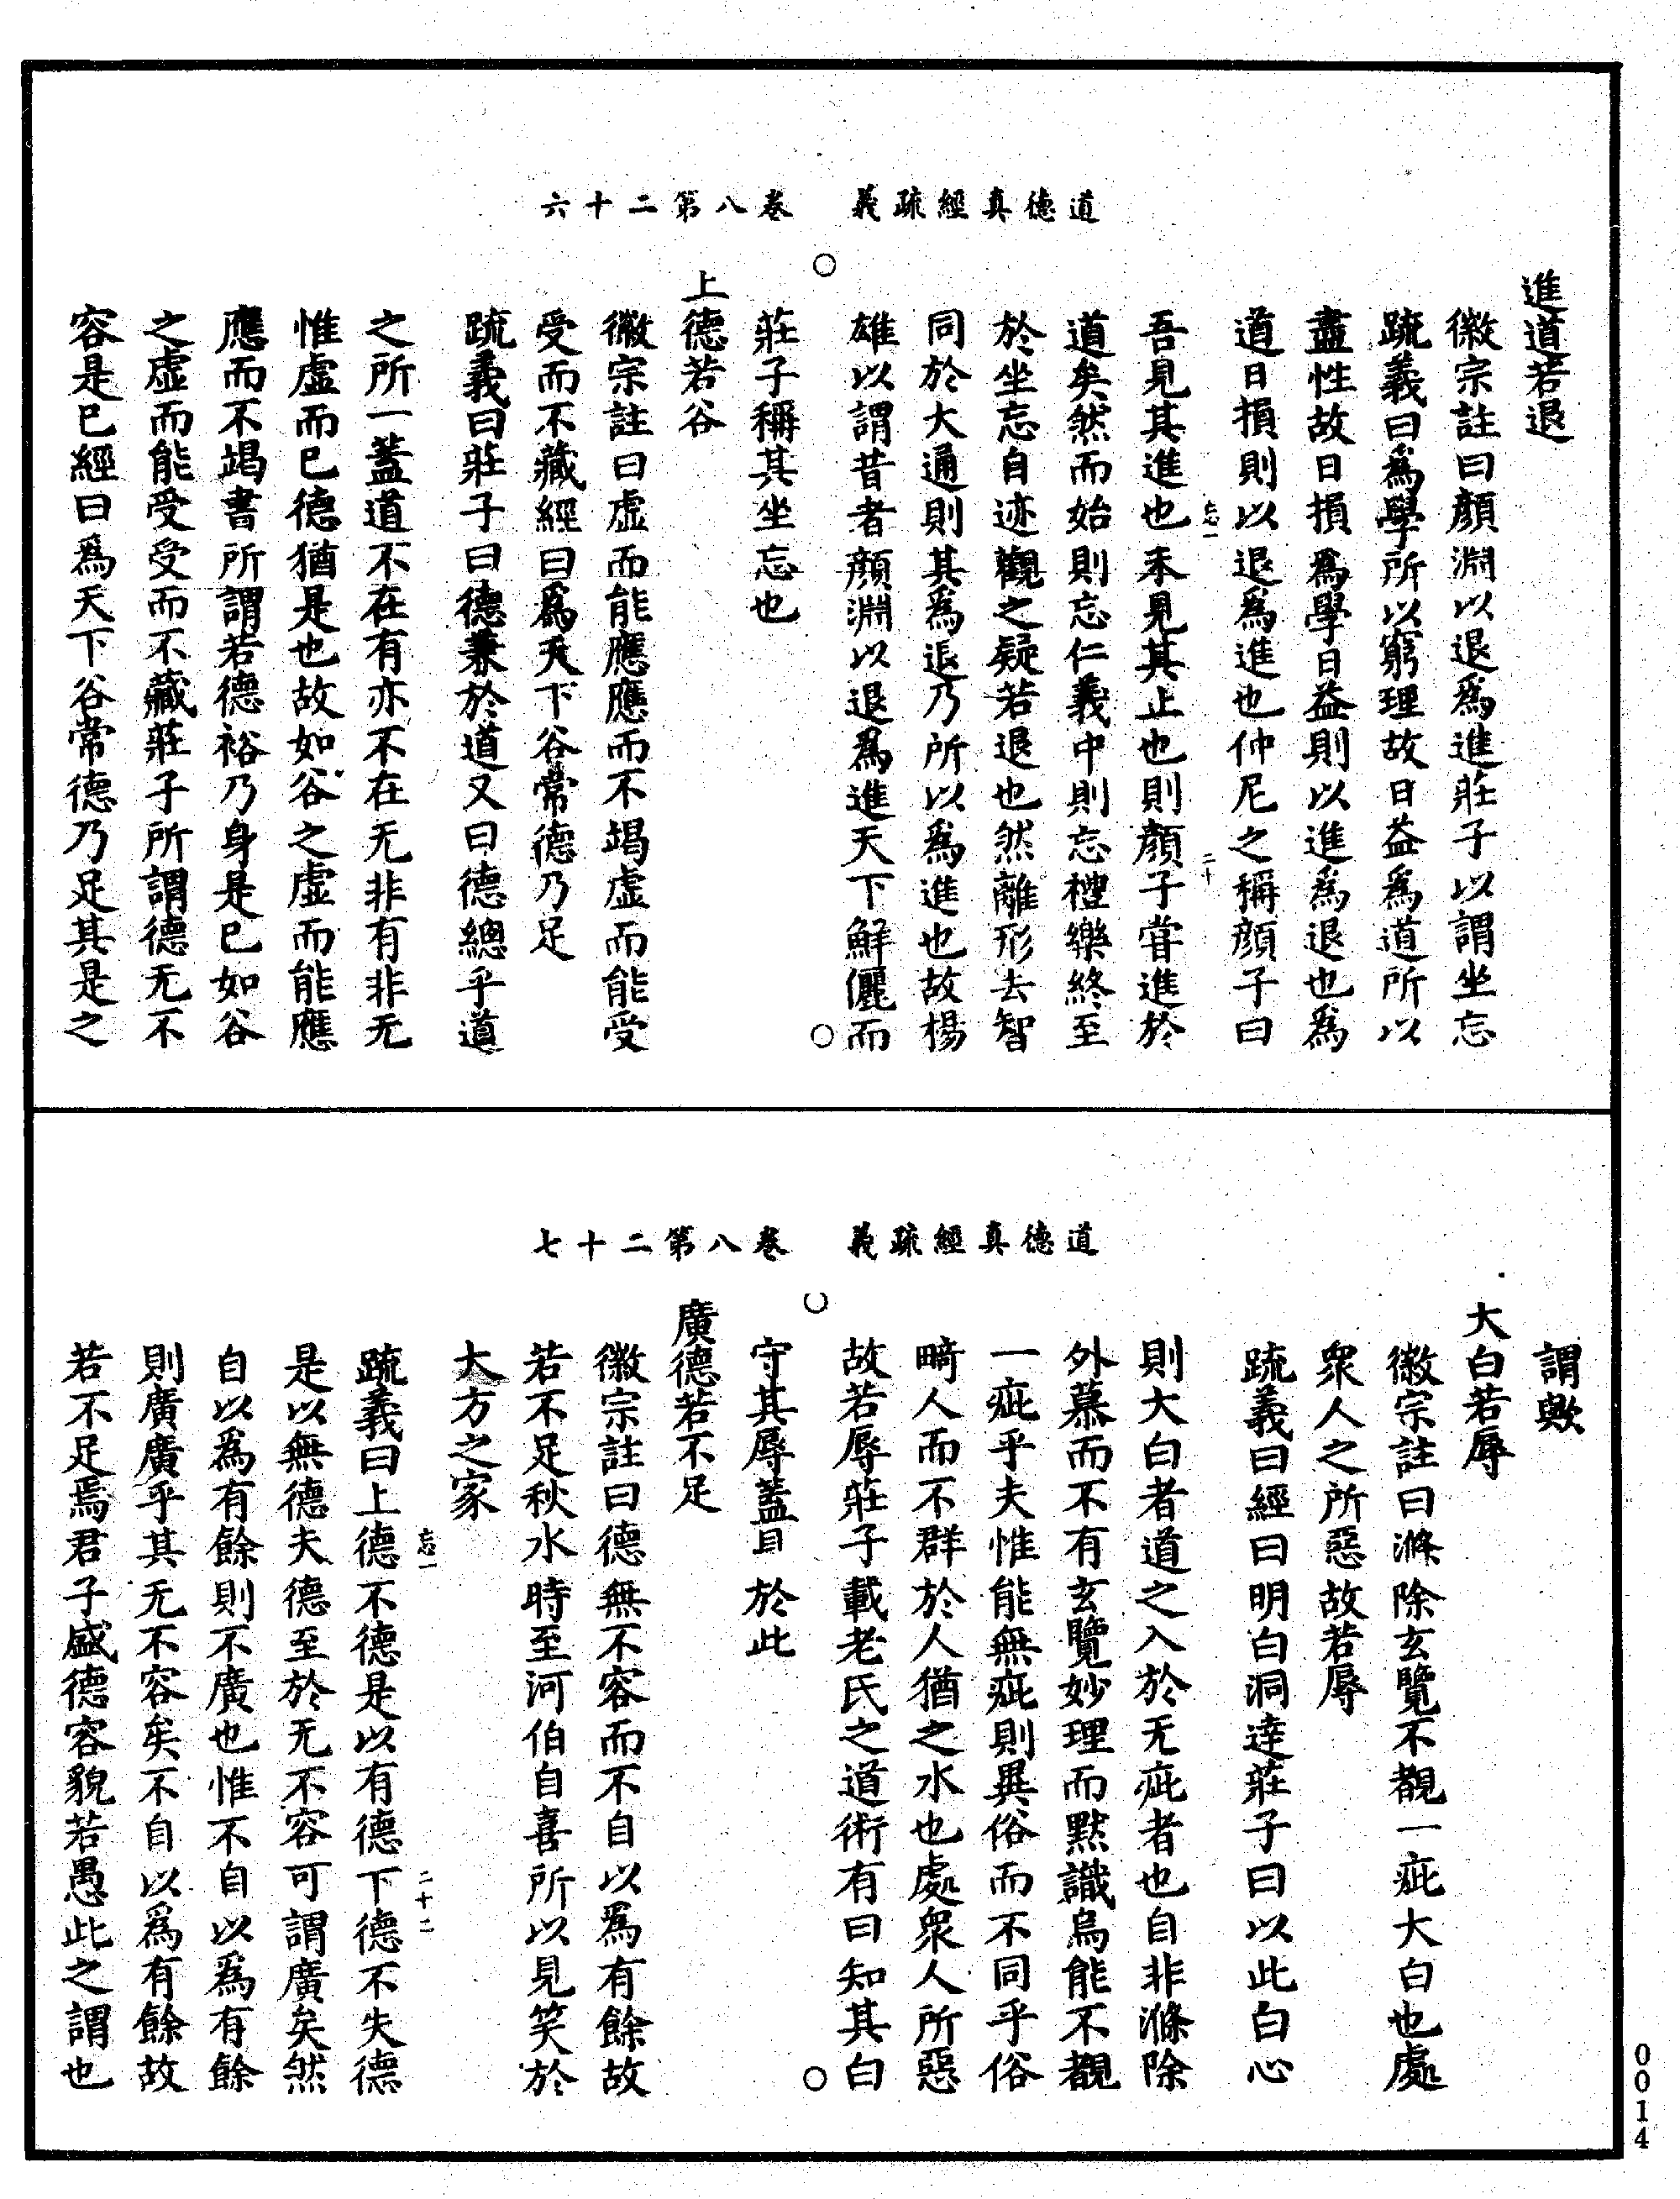 道德真經疏義　卷八第二十六
進道若退
徽宗註曰顏淵以退爲進莊子以謂坐忘
疏義曰爲學所以窮理故日益爲道所以
盡性故日損爲學日益則以進爲退也爲
道日損則以退爲進也仲尼之稱顏子曰
忘一　二十
吾見其進也未見其止也則顏子甞進於
道矣然而始則忘仁義中則忘禮樂終至
於坐忘自迹觀之疑若退也然離形去智
同於大通則其爲退乃所以爲進也故楊
雄以謂昔者顏淵以退爲進天下鮮儷而
○　○
莊子稱其坐忘也
上德若谷
徽宗註曰虛而能應應而不竭虛而能受
受而不藏經曰爲天下谷常德乃足
疏義曰莊子曰德兼於道又曰德總乎道
之所一蓋道不在有亦不在无非有非无
惟虛而已德猶是也故如谷之虛而能應
應而不竭書所謂若德裕乃身是已如谷
之虛而能受受而不藏莊子所謂德无不
容是已經曰爲天下谷常德乃足其是之
道德真經疏義　卷八第二十七
謂歟
大白若辱
徽宗註曰滌除玄覽不覩一疵大白也處
衆人之所惡故若辱
疏義曰經曰明白洞達莊子曰以此白心
則大白者道之入於无疵者也自非滌除
外慕而不有玄覽妙理而默識烏能不覩
一疵乎夫惟能無疵則異俗而不同乎俗
畸人而不群於人猶之水也處衆人所惡
故若辱莊子載老氏之道術有曰知其白
○　○
守其辱蓋目於此
廣德若不足
徽宗註曰德無不容而不自以爲有餘故
若不足秋水時至河伯自喜所以見笑於
大方之家
忘一　二十二
疏義曰上德不德是以有德下德不失德
是以無德夫德至於无不容可謂廣矣然
自以爲有餘則不廣也惟不自以爲有餘
則廣廣乎其无不容矣不自以爲有餘故
若不足焉君子盛德容貌若愚此之謂也
0014